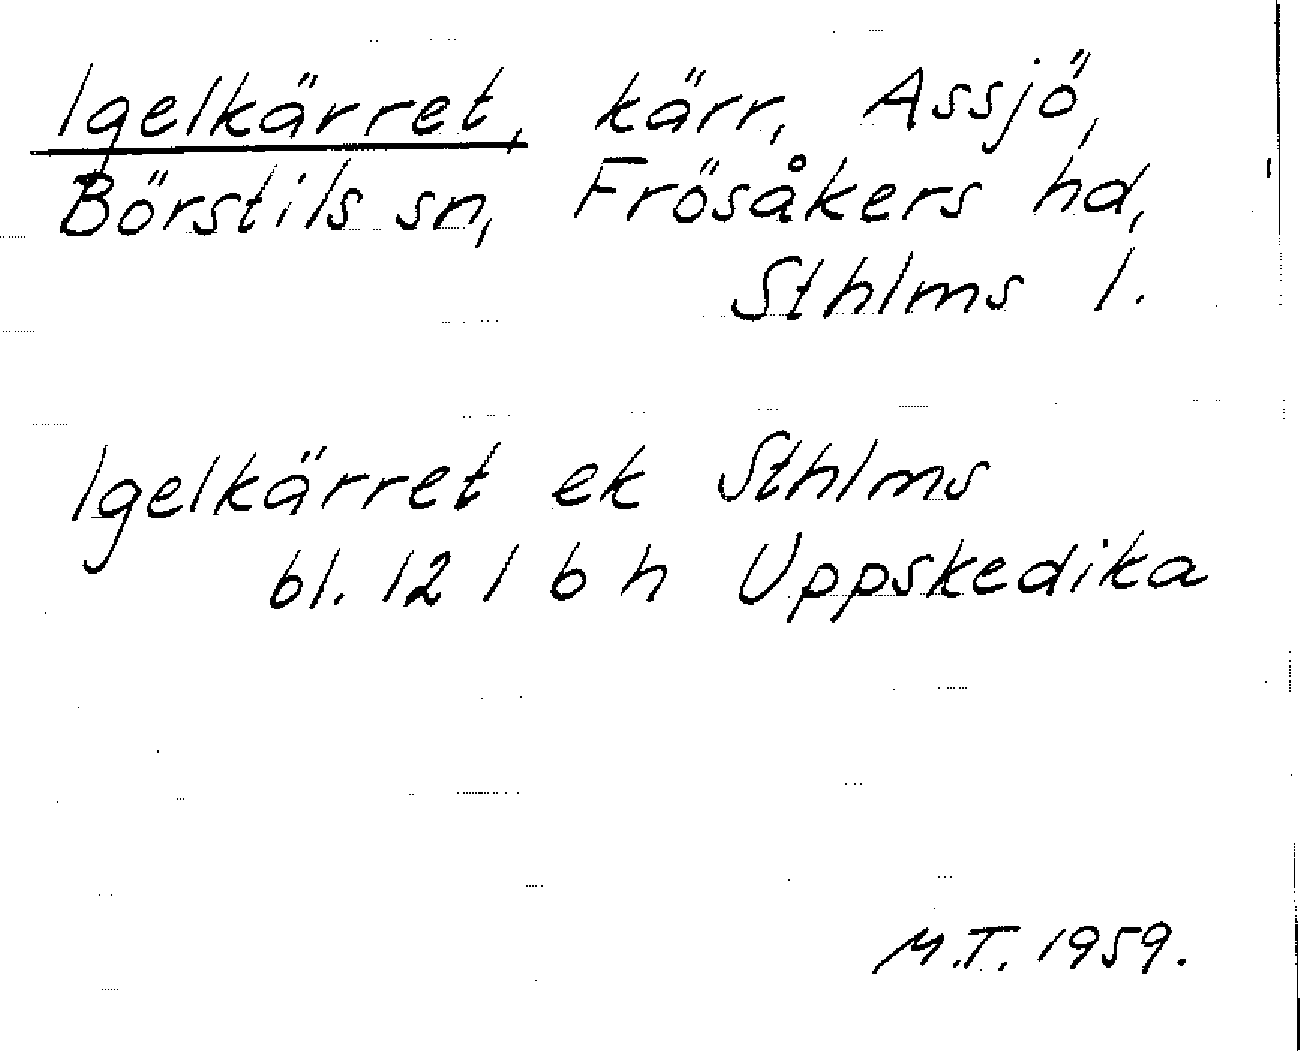 Igelkärret, kärr, Assjö,
Börstils sn, Frösåkers hd,
Sthlms l.
Igelkärret ek Sthlms
bl. 12 I 6 h Uppskedika
M.T. 1959.